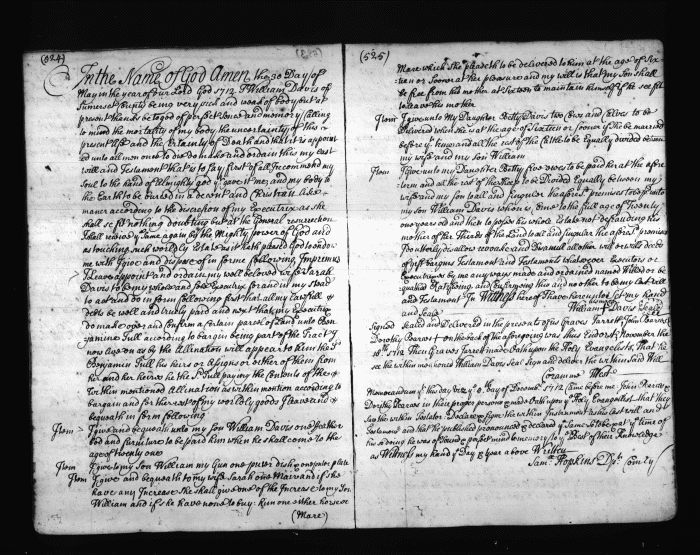 (524)
In the Name of God Amen the 30 Day of
May in the year of our Lord God 1712 I William Davis of
Sumerset County being very sick and weak of body but at
present thanks be to god of perfect sence and memory calling
to mind the mortality of my body the uncertainty of this
present life and the certainty of Death and that it is appoint
ed unto all men once to dye do make and ordain this my last
will and Testament that is to say first of all I recommend my
Soul to the hand of Almighty god yt gave it me, and my body to
the Earth to be buried in a decent and Christian like
maner according to the descretion of my Executrix as she
shall see fit nothing doubting but at the General resurrection
I shall receive ye Same again by the Mighty power of God and
as touching such worldly Estate as it hath pleased God to endow
me with I give and dispose of in forme following Imprimus
I leave appoint and ordain my well beloved wife Sarah
Davis to be my whole and sole Executrix & and in my stead
to act and do in form following first that all my lawfull
debts be well and truly paid and next that my Executrix
do make over and confirm a certain parcel of Land unto Ben
jamine Tull according to bargain being part of the Tract I
now live on as by the Allienation will appear to him the sd
Benjamin Tull his heirs or Assigns or either of them from
her and her heires he the sd Tull paying the contents of the
within mentioned Allination as within mention according to
bargain and for the rest of my worldly goods I leave and
bequeath in form following
Item I give and bequeath unto my Son William Davis one feather
bed and furniture to be paid him when he shall come to the
age of twenty one
Item I give to my Son William my Gun one puter dish one puter plate
Item I give and bequeath to my wife Sarah one Mare and if she
have any Increase she shall give one of the Increase to my Son
William and if she have none to buy him one other horse or
(Mare)
(525)
Mare which She pleaseth to be delivered to him at the age of Six
teen or Sooner at her pleasure and my will is that my Son shall
be free from his mother at Sixteen to maintain himself if he see fit
to leave his mother
Item I give unto My Daughter Betty Davis two Cows and Calves to be
delivered when she is at the age of Sixteen or Sooner if She be married
before ye term and all the rest of the Cattle to be Equally divided between
my wife and my Son William
Item I give unto my Daughter Betty five Ewes to be paid her at the afore
term and all the rest of the Sheep to be Divided Equally between my
wife and my Son
my Son William Davis when he come to the full age of Twenty
one years old and to posses his whole Estate not defrauding his
mother of the Thirds of the Land
I do utterly disallow revoake and Disanull all other will or wills deeds
of gift bargins Testament and Testaments whatsoever Executors or
Executrixes by me any ways made and ordained named Willed or be
queathed Ratifiing and confirming this and no other to be my last will
and Testament In Witness hereof I have hereunto Set my Hand
and Seale William Davis Seale
Signed Sealed and Delivered in the presents of us Graves Jarrett John Bearns
Dorothy Bearns on the back of the aforegoing was this Endorst November the
18th 1712 Then Graves Jarrett made Oath upon the Holy Evangelists that he
see the within mentioned William Davis Seal Sign and deliver the within Said Will
Corame Mee
Memorandum
Dorothy Bearns in their proper persons & made Oath upon ye Holy Evangelists that they
See the within Testator Declare & Signe the within Instrument to be his last will and
Testament and that He published pronounced & declared ye Same to be so & that att ye time of
his so doing he was of Sound & perfect mind & memory to ye best of their Knowledge
as Witness my hand ye Day & year above Written
Sam. Hopkins Dpt. Comry